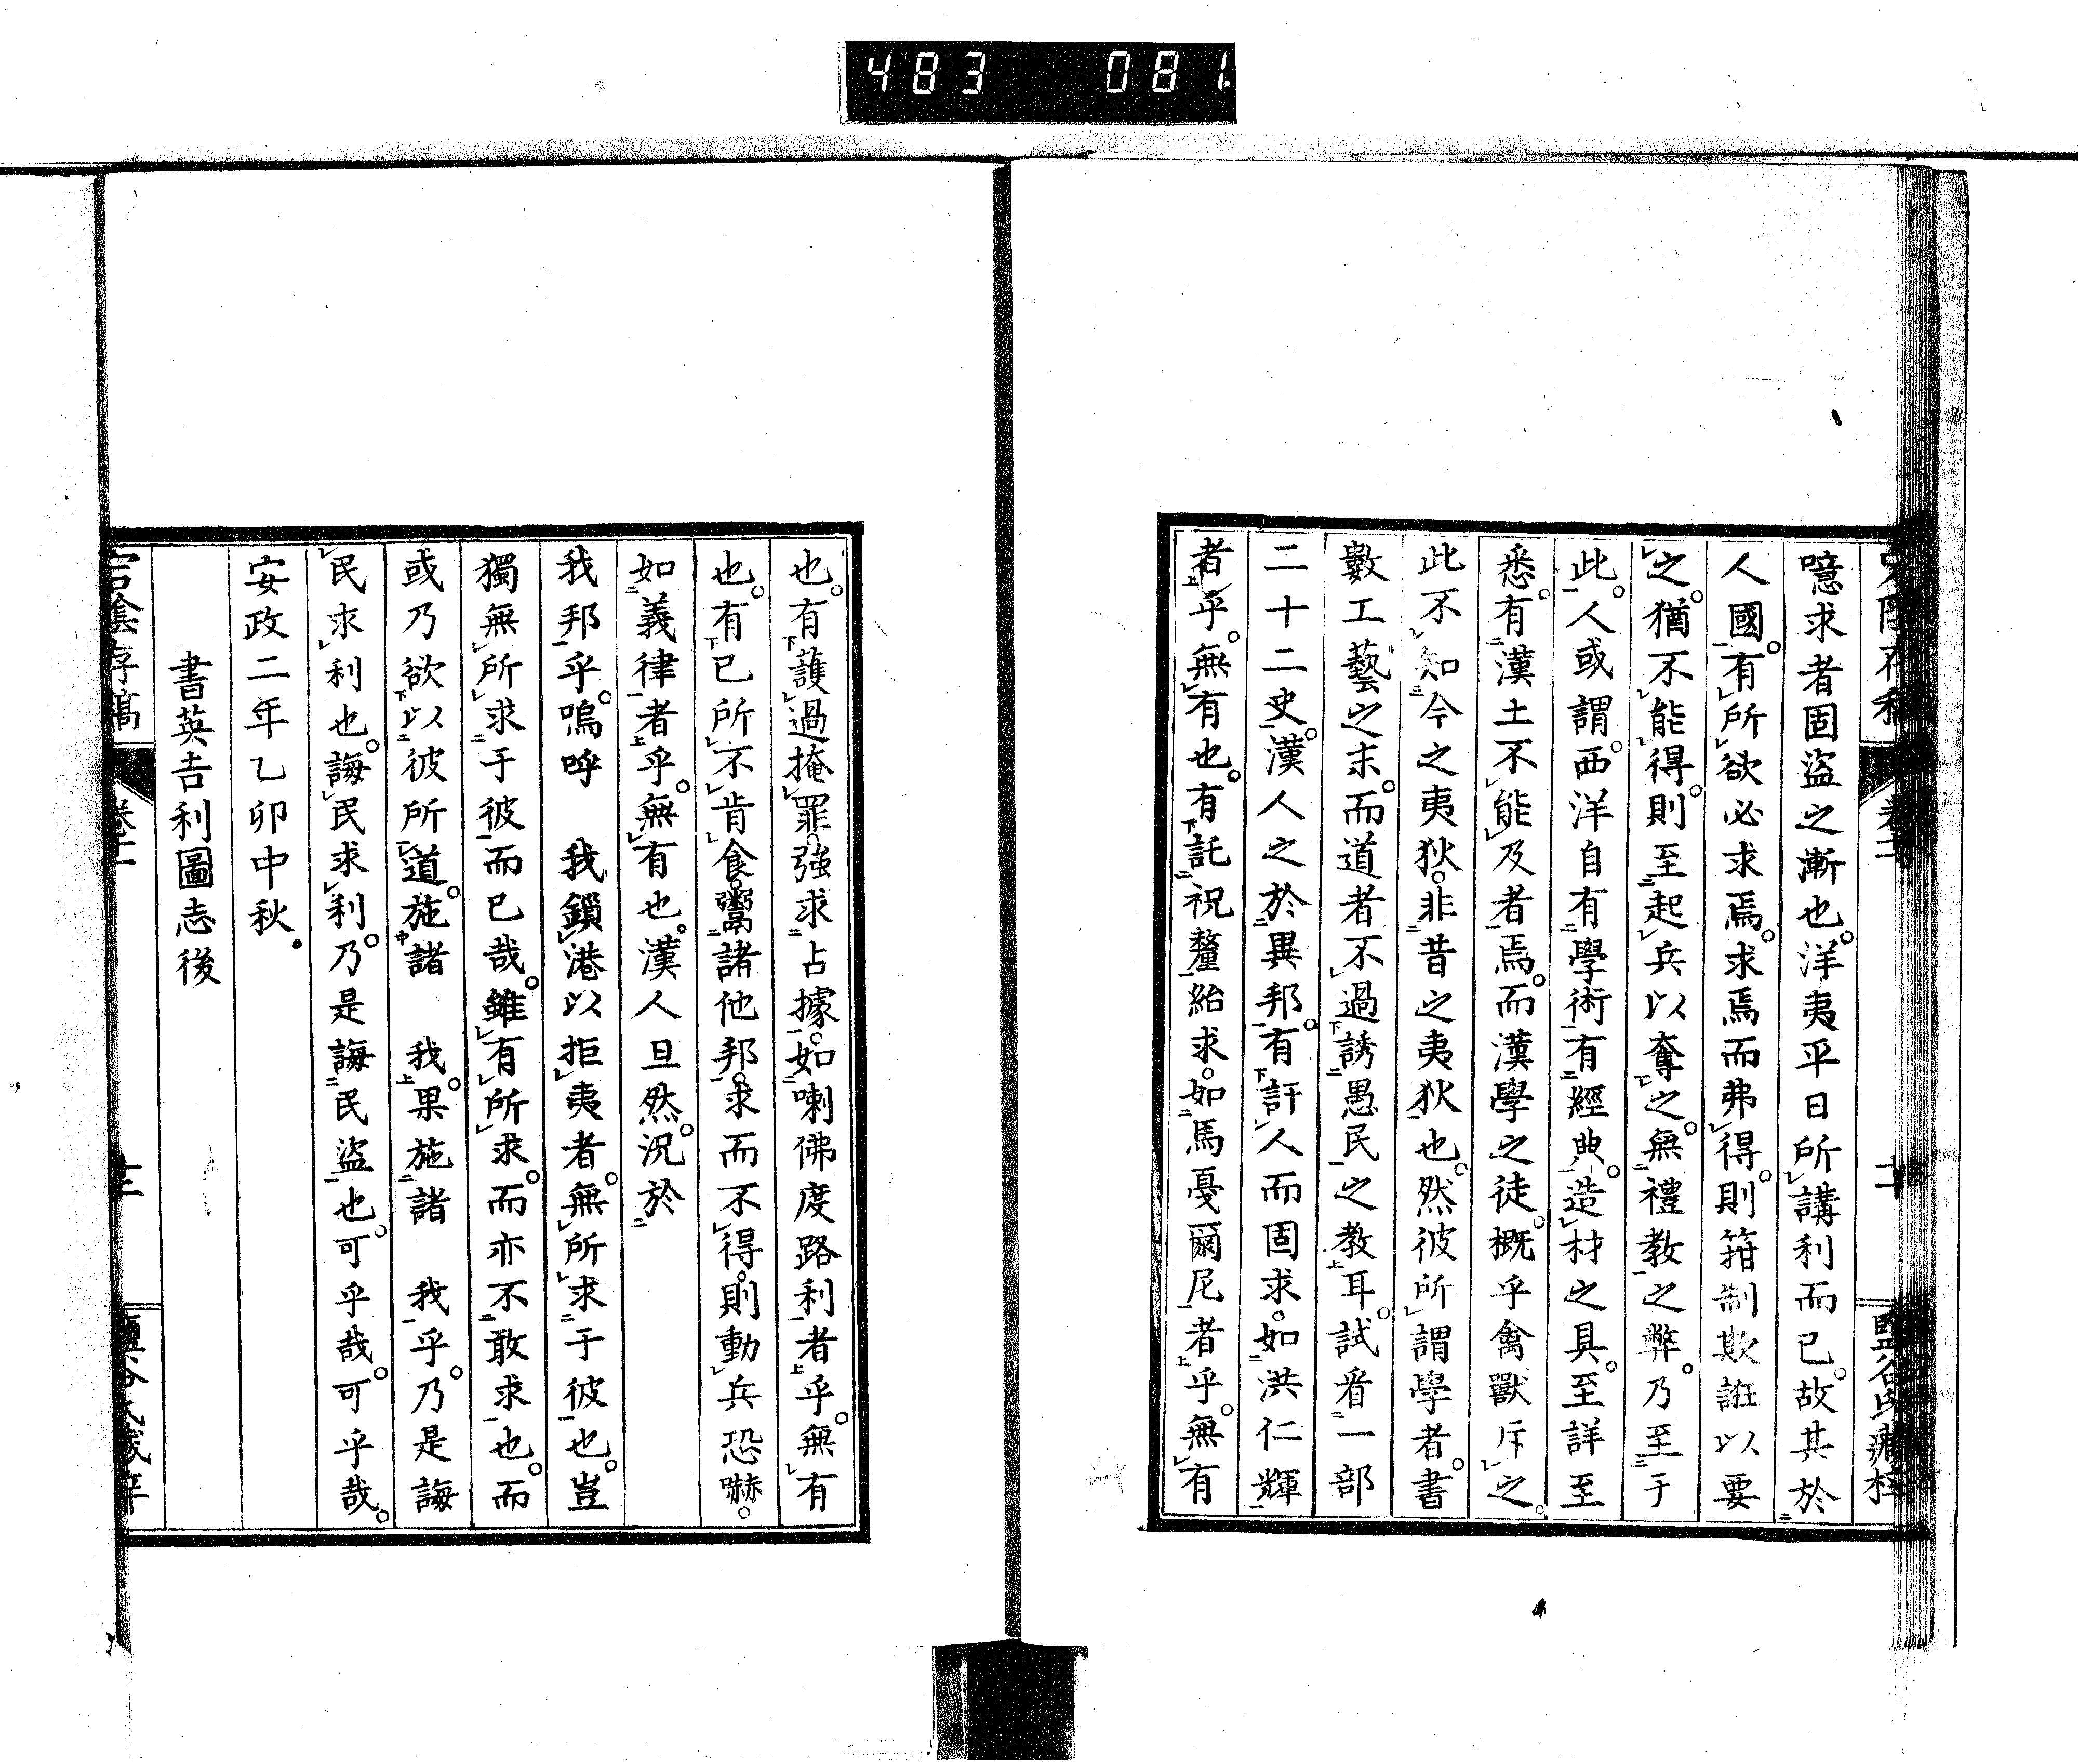 483 081
噫求者固盜之漸也。洋夷平日所㆑講利而已。故其於㆓
人國㆒。有㆑所㆑欲必求焉。求焉而弗㆑得。則箝制欺誑以要
㆑之。猶不㆑能㆑得。則至㆘起㆑兵以奪㆖之。無㆓禮教㆒之弊。乃至㆓于
此㆒。人或謂。西洋自有㆓學術㆒有㆓經典㆒。造㆑材之具。至詳至
悉。有㆓漢土不㆑能㆑及者㆒焉。而漢學之徒。概乎禽獸斥㆑之。
此不㆑知㆘今之夷狄。非㆗昔之夷狄㆖也。然彼所㆑謂學者。書
數工藝之末。而道者不㆑過㆘誘㆓愚民㆒之教㆖耳。試看㆓一部
二十二史㆒。漢人之於㆓異邦㆒。有㆘訐㆑人而固求。如㆓洪仁輝㆒
者㆖乎。無㆑有也。有㆘託㆓祝釐㆒紿求。如㆓馬戞爾尼㆒者㆖乎。無㆑有
也。有㆘護㆑過掩㆑罪。强求㆓占據㆒。如㆓喇佛度路利㆒者㆖乎。無㆑有
也。有㆘已所㆑不㆑肯㆑食。鬻㆓諸他邦㆒。求而不㆑得。則動㆑兵恐嚇。
如㆓義律㆒者㆖乎。無㆑有也。漢人且然。況於㆓
我邦㆒乎。嗚呼 我鎖㆑港以拒㆑夷者。無㆑所㆑求㆓于彼㆒也。豈
獨無㆑所㆑求㆓于彼㆒而已哉。雖㆑有㆑所㆑求。而亦不㆓敢求㆒也。而
或乃欲㆘以㆓彼所㆒㆑道。施㆗諸 我㆖。果施㆓諸 我㆒乎。乃是誨
㆑民求㆑利也。誨㆑民求㆑利。乃是誨㆓民盜㆒也。可乎哉。可乎哉。
安政二年乙卯中秋。
書英吉利圖志後
宕陰存稿 卷十一